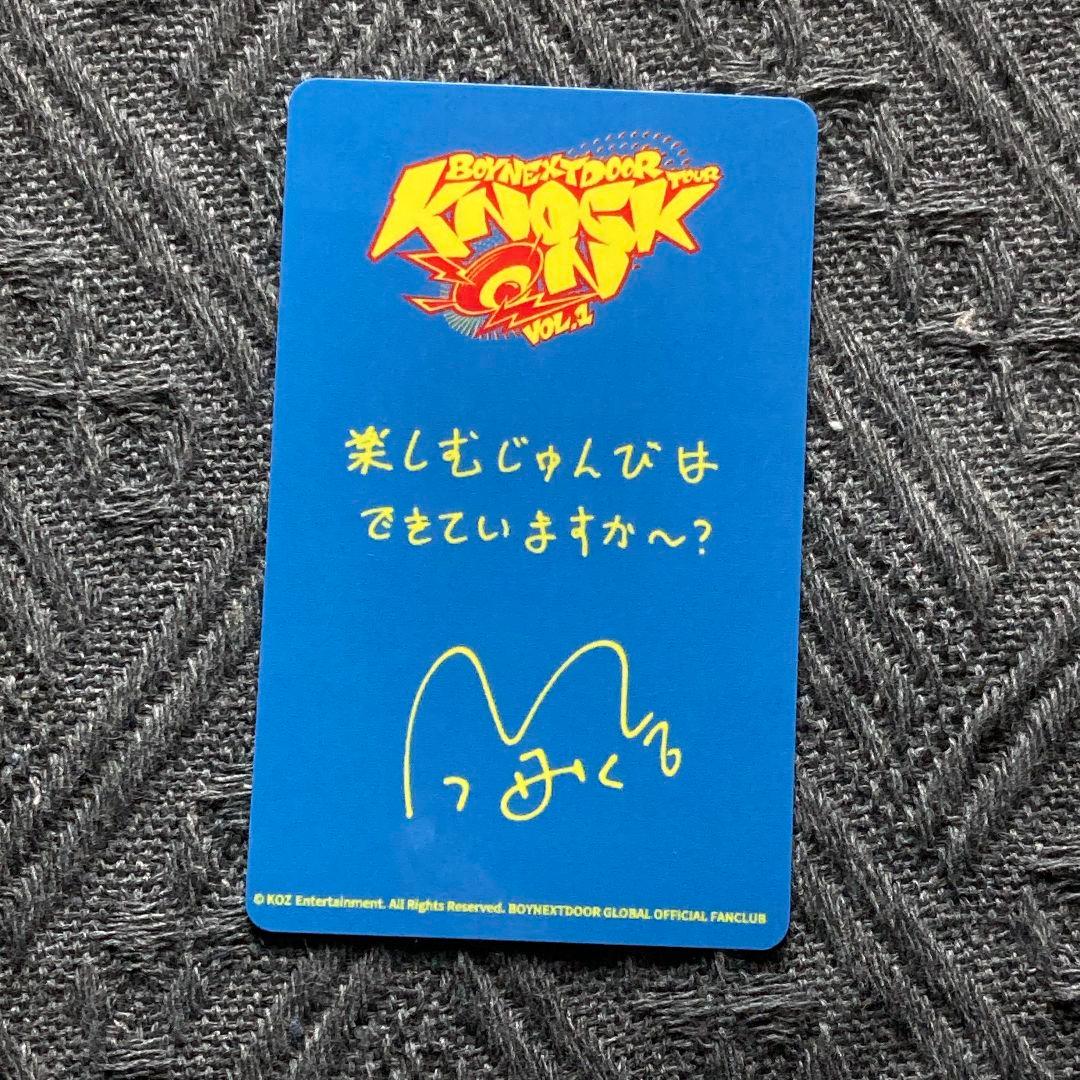 BOYNEXTDOOR TOUR
KNOCK
ON
VOL.1
楽しむじゅんびは
できていますか～?
© KOZ Entertainment. All Rights Reserved. BOYNEXTDOOR GLOBAL OFFICIAL FANCLUB